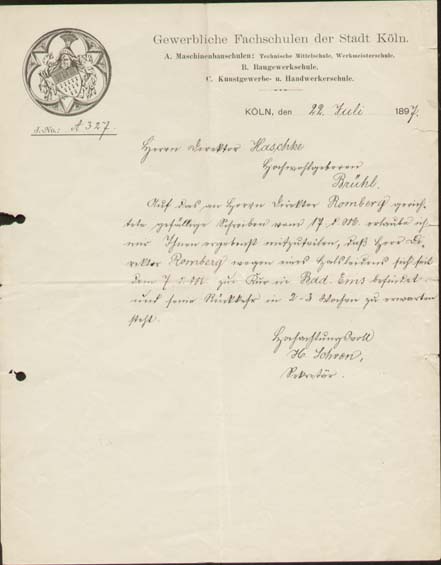 Gewerbliche Fachschulen der Stadt Köln.
A. Maschinenbauschulen: Technische Mittelschule, Werkmeisterschule.
B. Baugewerkschule.
C. Kunstgewerbe- u. Handwerkerschule.
J.-No.: A 327.
KÖLN, den 22. Juli 1897.
Herrn Direktor Haschke
Hochwohlgeboren
Brühl.
Auf das, an Herrn Direktor Romberg gerich-
tete gefällige Schreiben vom 17. d. M. erlaube ich
mir Ihnen ergebenst mitzuteilen, daß Herr Di-
rektor Romberg wegen eines Halsleidens sich seit
dem 7 d. M zur Kur in Bad. Ems befindet
und seine Rückkehr in 2-3 Wochen zu erwarten
steht.
Hochachtungsvoll
H. Schoen,
Sekretär.